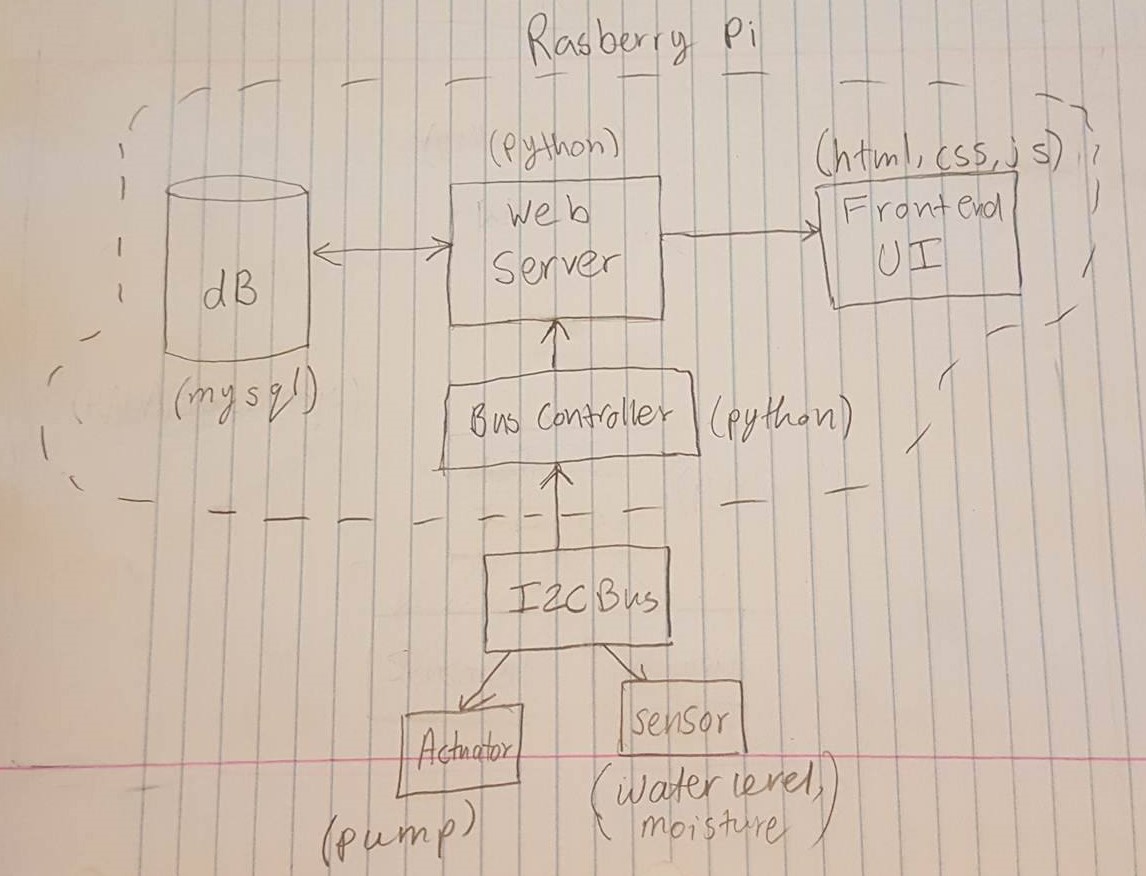 Rasberry Pi
(python)
(html, css, js)
Web
Server
Frontend
UI
dB
(mysql)
Bus Controller
(python)
I2C Bus
Actuator
(pump)
sensor
(water level,
moisture)